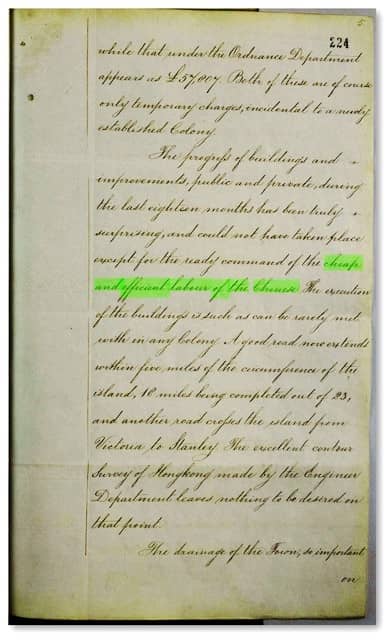 5
224
while that under the Ordnance Department
appears as £57,007. Both of these are of course
only temporary charges, incidental to a newly
established Colony.
The progress of buildings and
improvements, public and private, during
the last eighteen months has been truly
surprising, and could not have taken place
except for the ready command of the cheap
and efficient labour of the Chinese. The execution
of the buildings is such as can be rarely met
with in any Colony. A good road now extends
within five miles of the circumference of the
island, 18 miles being completed out of 23,
and another road crosses the island from
Victoria to Stanley. The excellent contour
Survey of Hongkong made by the Engineer
Department leaves nothing to be desired on
that point.
The drainage of the Town, so important
on